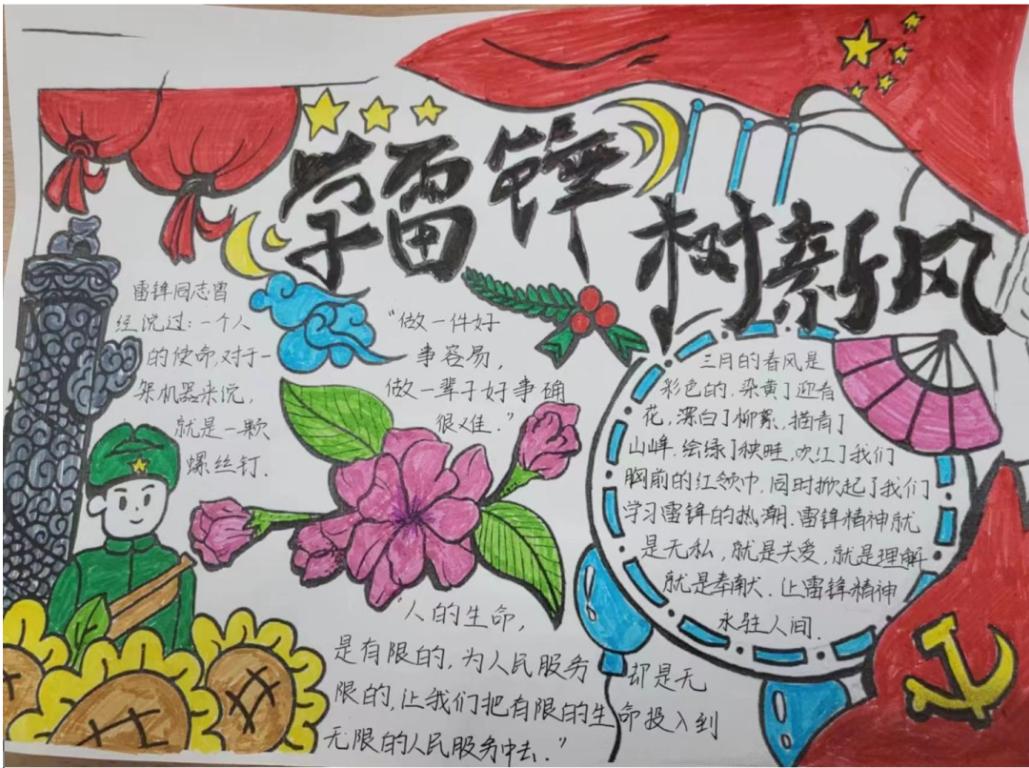 学雷锋
树新风
雷锋同志曾
经说过：一个人
的使命，对于一
架机器来说，
就是一颗
螺丝钉．
“做一件好
事容易，
做一辈子好事确
很难．”
三月的春风是
彩色的．染黄了迎春
花，漂白了柳絮．描青了
山峰．绘绿了秧畦，吹红了我们
胸前的红领巾．同时掀起了我们
学习雷锋的热潮．雷锋精神就
是无私，就是关爱，就是理解
就是奉献．让雷锋精神
永驻人间．
“人的生命，
是有限的，为人民服务 却是无
限的，让我们把有限的生命投入到
无限的人民服务中去．”